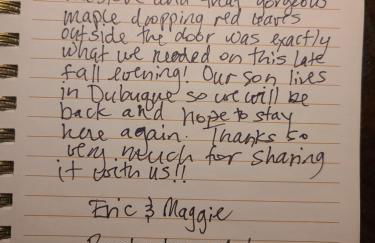 and that gorgeous
maple dropping red leaves
outside the door was exactly
what we needed on this late
fall evening! Our son lives
in Dubuque so we will be
back and hope to stay
here again. Thanks so
very much for sharing
it with us!!
Eric & Maggie